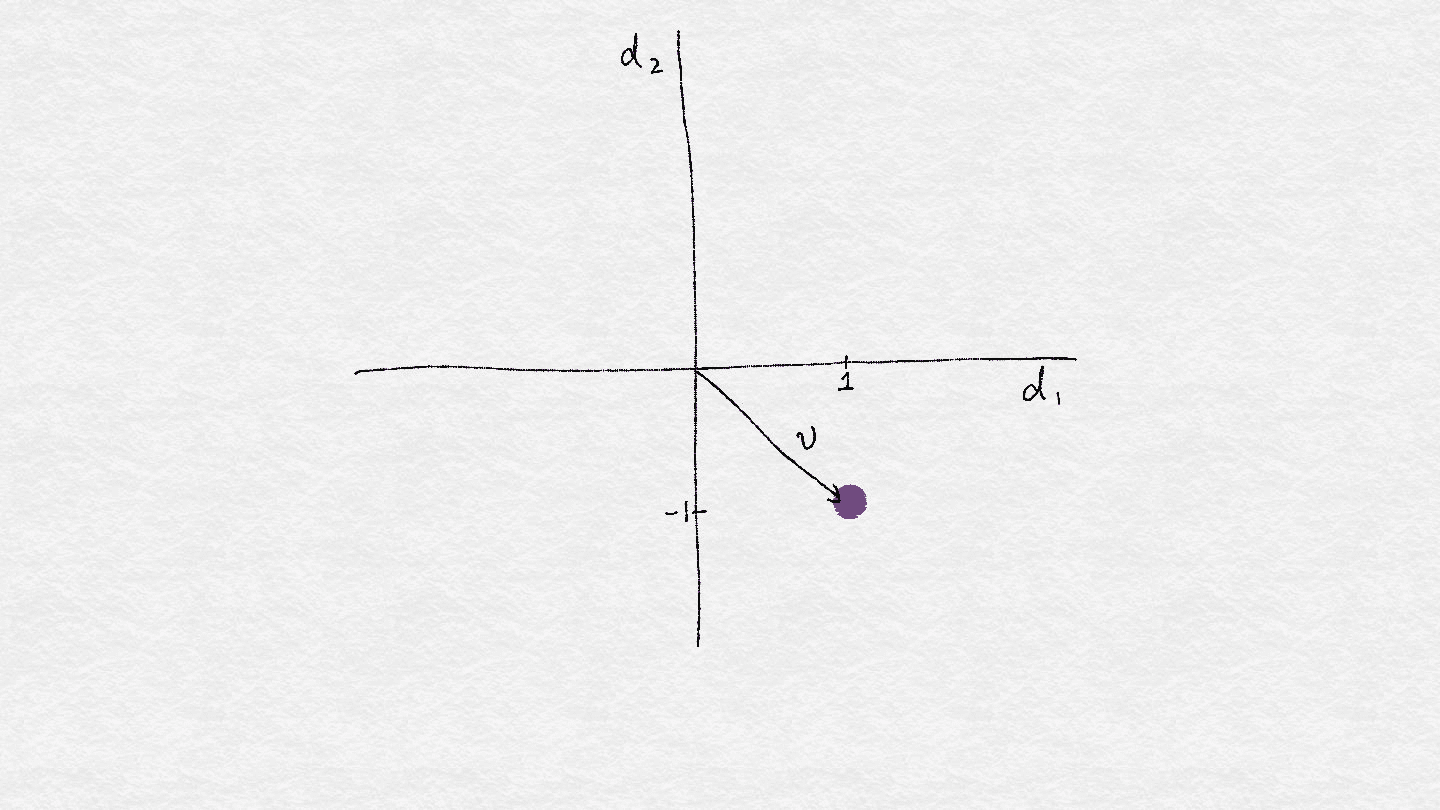 d₂
1
d₁
v
-1